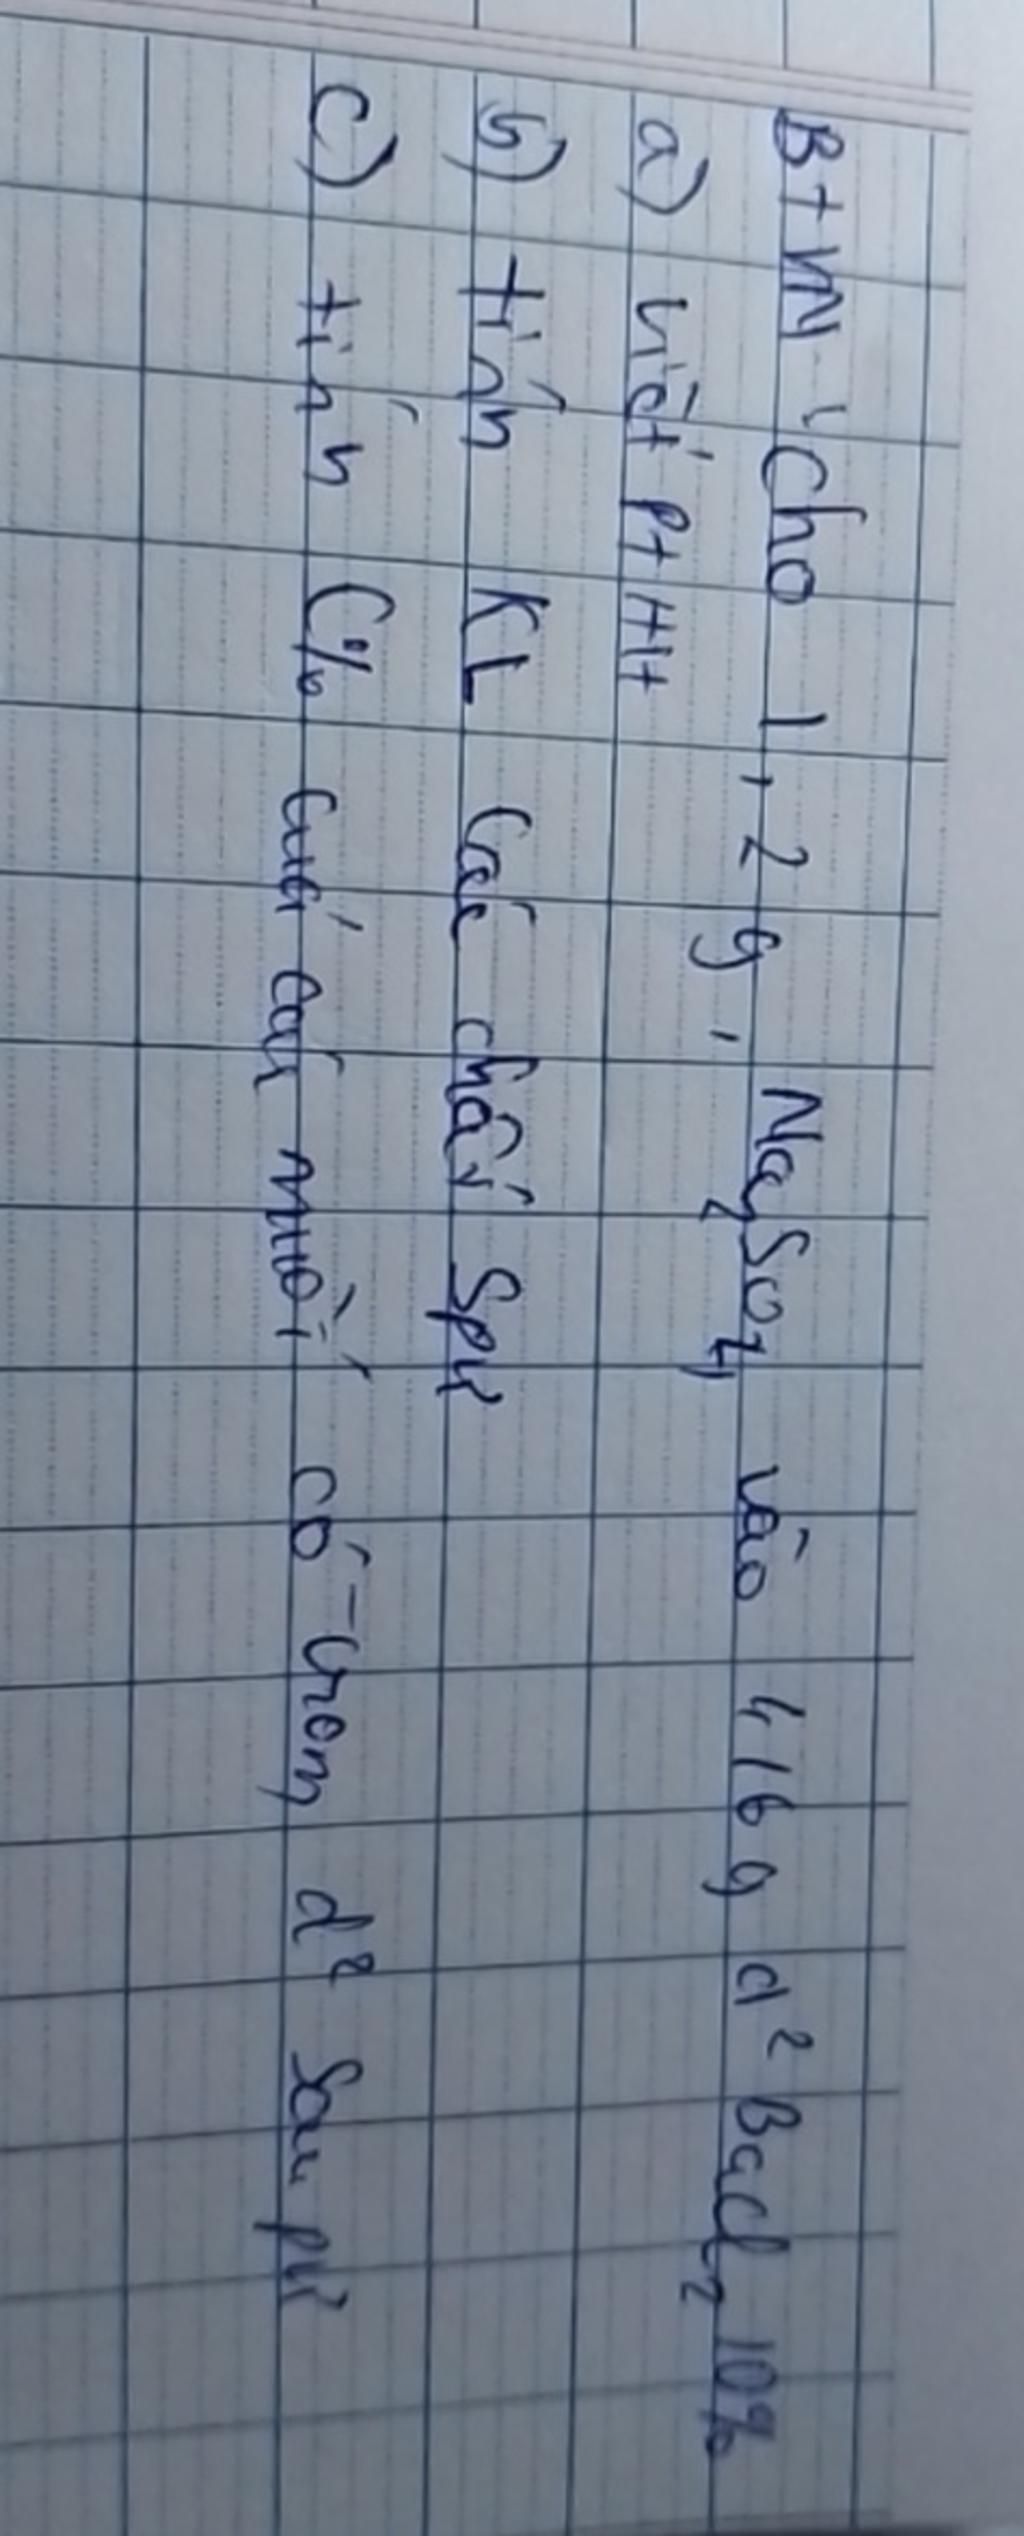 BTVN: Cho 1,2 g, Na2SO4 vào 416 g d² BaCl2 10%
a) Viết PTHH
b) tính KL Các chất Spư
c) tính C% của các muối có trong d² sau pư